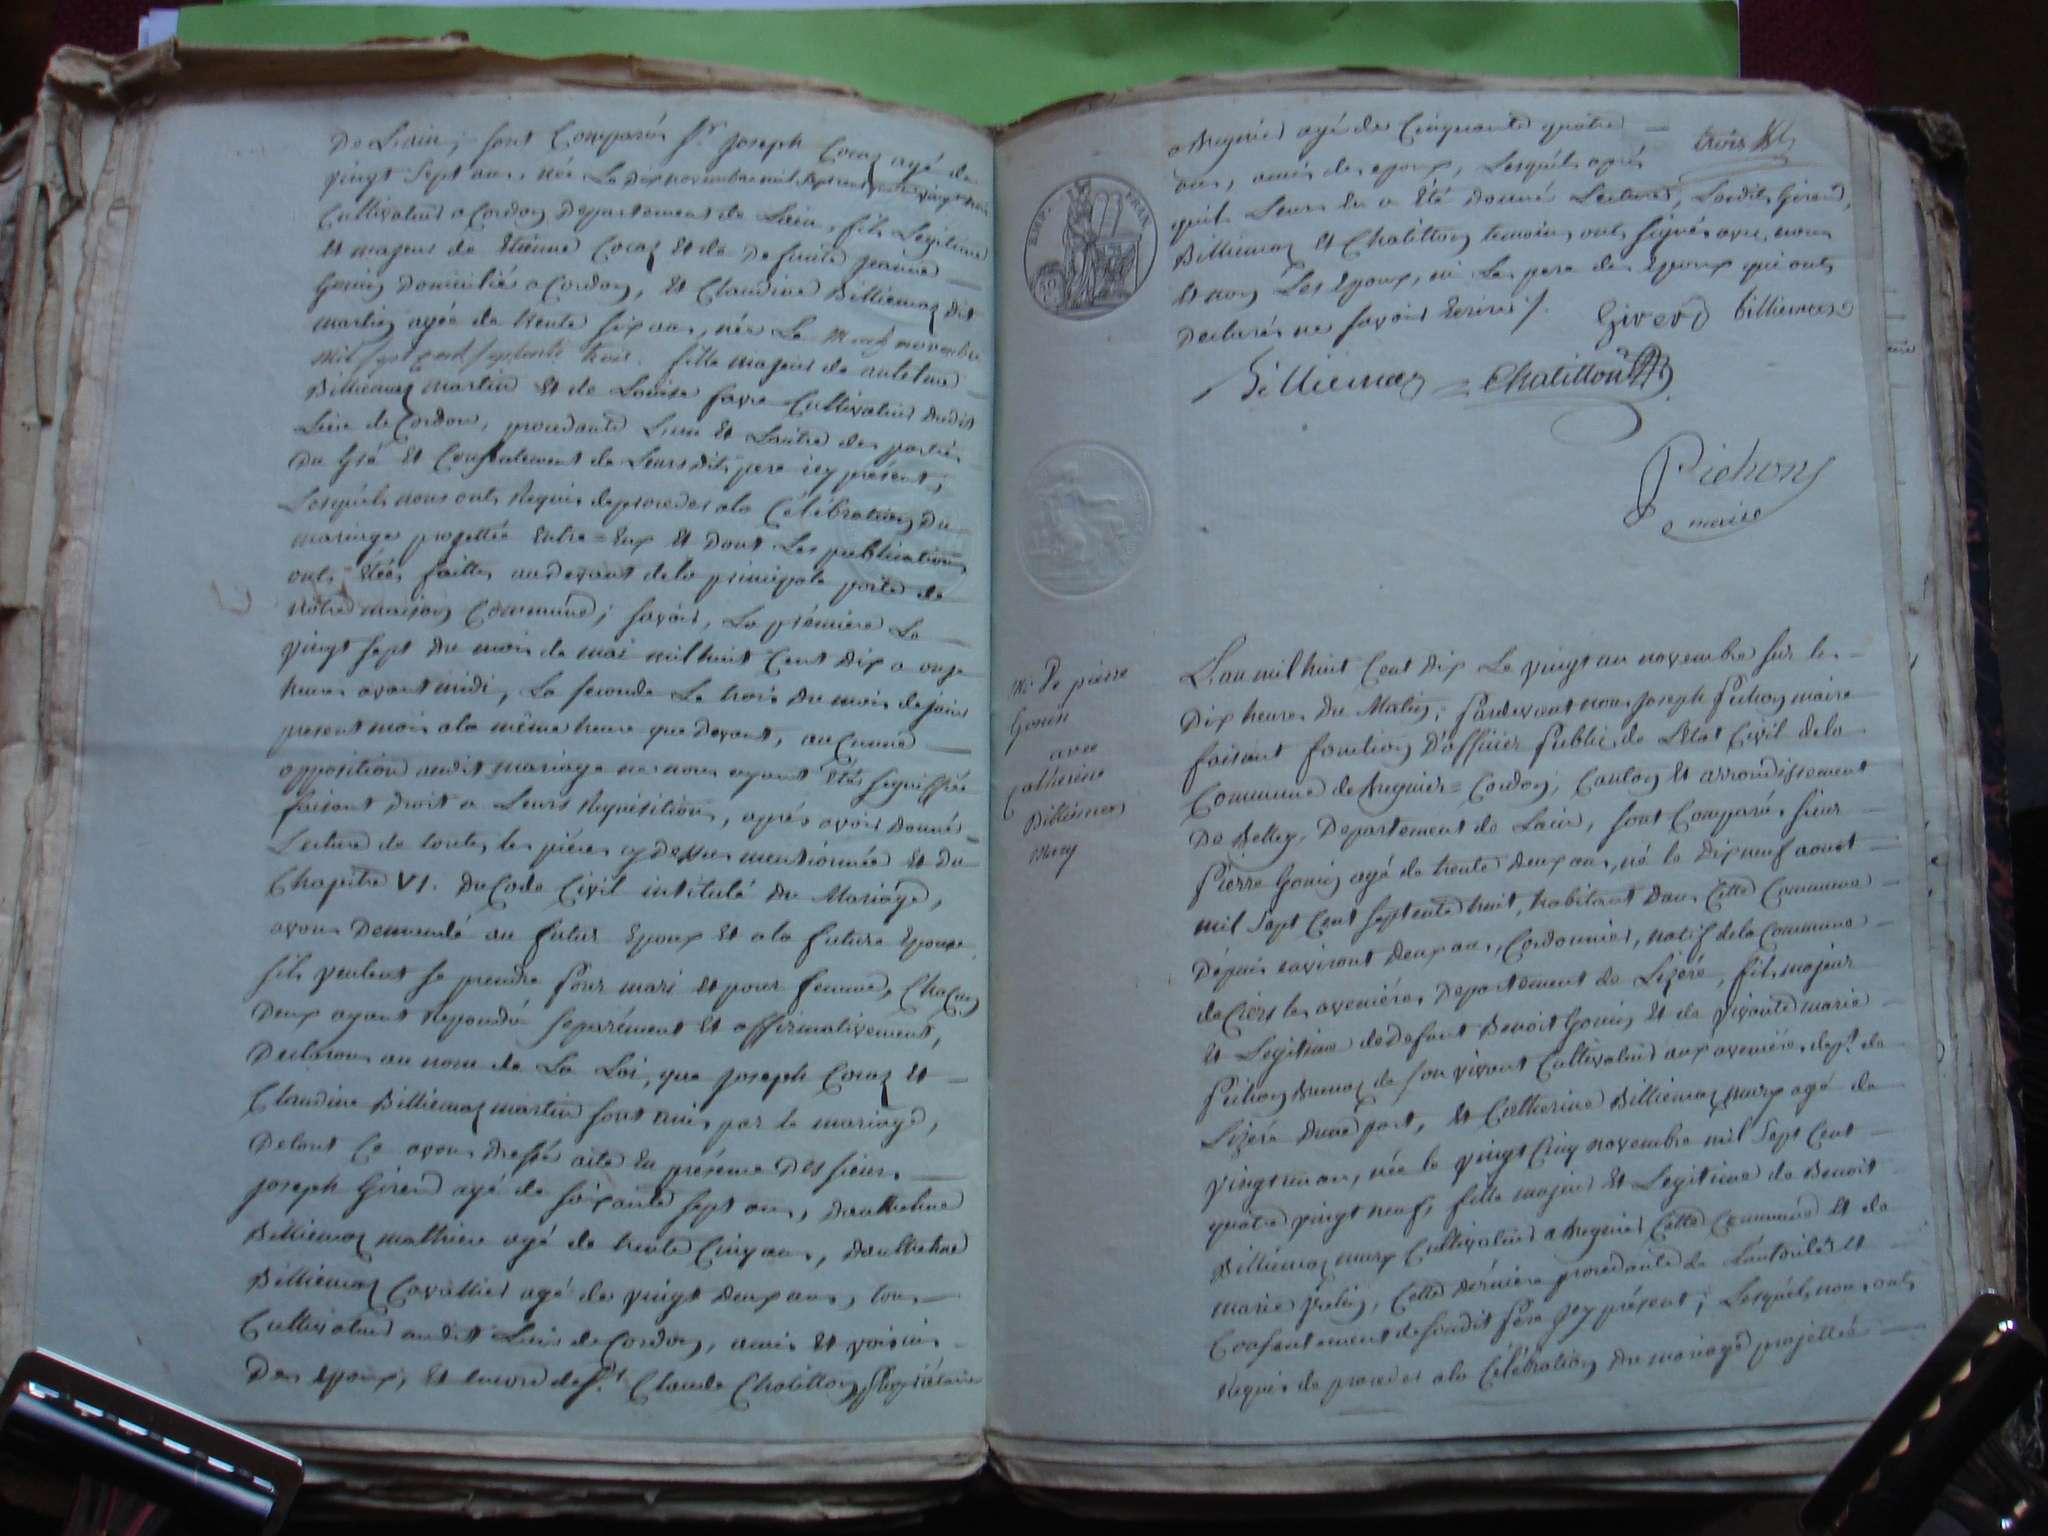 De Lain; sont Comparu Sr. Joseph Cocaz agé de
vingt Sept ans, née Le dix novembre mil sept cent quatre vingt deux
Cultivateur a Cordon Departement de Lain, fils Legitime
et majeur de Etienne Cocaz et de Defunte Jeanne
Gonin Domiciliés a Cordon, et Claudine Billiemaz dit
martin agée de trente six ans, née Le novembre
mil sept cent septante trois. fille majeur de antelme
Billiemaz martin et de Louise favre Cultivateur dudit
Lieu de Cordon, procedante Lune et Lautre des parties
Du Gré et Consentement de Leursdits pere icy présent;
Lesquels nous ont Requis deproceder ala Célébration Du
mariage projettée Entre=Eux et dont Les publications
ont Etées faittes audevant dela principale porte de
nôtre maison Commune; savoir, La prémiere Le
vingt sept du mois de mai mil huit Cent dix a onze
heures avant midi, La seconde Le trois du mois de juin
present mois ala même heure que devant, aucunne
opposition audit mariage ne nous ayant Etés signiffiée
faisant droit a Leurs Requisition, aprés avoir donné
Lecture de toutes les piéces cy dessus mentionnée et du
Chapitre VI. du Code Civil intitulé Du Mariage,
avons Demandé au futur Epoux et ala future Epouse
sils veulent se prendre pour mari et pour femme, Chacun
Deux ayant Repondu separément et affirmativement,
Declarons au nom de La Loi, que Joseph Cocaz et
Claudine Billiemaz martin sont unis par le mariage,
Detout Ce avons dressé acte En présence des sieurs
Joseph Girerd agé de soixante sept ans, danthelme
Billiemaz mathieu agé de trente Cinq ans, danthelme
Billiemaz Cavallier agé de vingt deux ans, tous
Cultivateur audit Lieu de Cordon, amis et voisins
Des Epoux; et encore de Sr. Claude Chatillon propriétaire
a Bregnier agé de Cinquante quatre
ans, amis des epoux, Lesquels aprés
quil Leurs En a Eté donné Lecture, Lesdits Girerd,
Billiemaz et Chatillon temoins ont signés avec nous
et non Les Epoux, ni Les pere des epoux qui ont
Declarés ne savoir Ecrire /.
trois
Girerd Billiemaz
Billiemaz Chatillon
Pichon
maire
Me. De pierre
Gonin
avec
Catherine
Billiemaz
Mury
L'an mil huit Cent dix Le vingt un novembre sur les
Dix heures du Matin; Pardevant nous Joseph Pichon maire
faisant fonction d'officier Public de L'Etat Civil dela
Commune de Bregnier=Cordon, Canton et arrondissement
De Belley, Departement de Lain, sont Comparus sieur
Pierre Gonin agé de trente deux ans, né le dix neuf aoust
mil sept Cent septente huit, habitant dans Cette Commune
depuis environt deux ans, Cordonnier, natif dela Commune
de Ciers les avenières Departement de Lizere, fils majeur
et Legitime de defunt Benoit Gonin et de vivante marie
Pichon Brunaz de son vivant Cultivateur aux avenières, dept. de
Lizere dune part, et Catherine Billiemaz murx agé de
vingt un an, née le vingt Cinq novembre mil sept Cent
quatre vingt neuf, fille majeur et Legitime de Benoit
Billiemaz murx Cultivateur a Bregnier Cette Commune et de
marie Cette derniere procedante de Lautorité et
Consentement desondit Pere Jcy présent; Lesquels nous ont
Requis de proceder ala Célébration du mariage projettée